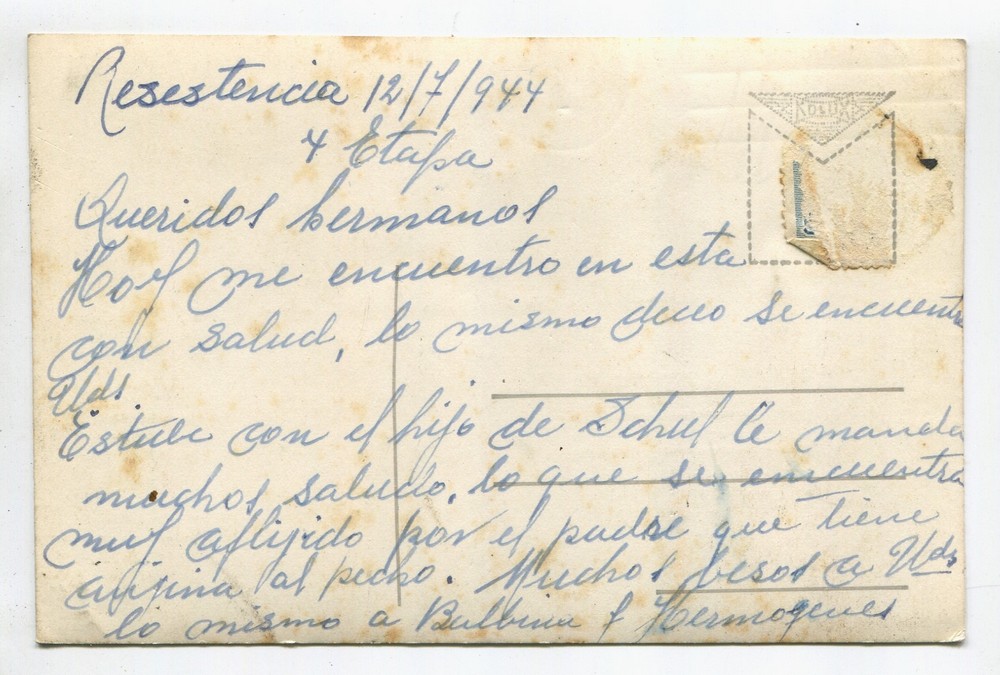 Resestencia 12/7/944
4 Etapa
KOLUX
Queridos hermanos
Hoy me encuentro en esta
con salud, lo mismo deceo se encuentre
Uds
Estube con el hijo de Schuf le manda
muchos saludo. lo que se encuentra
muy aflijido por el padre que tiene
anjina al pecho. Muchos besos a Uds
lo mismo a Balbina y Hermogenes